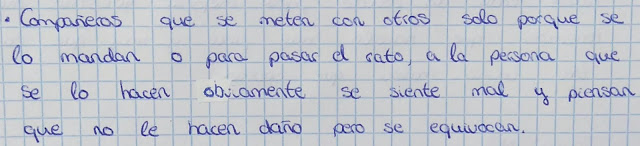 • Compañeros que se meten con otros solo porque se
lo mandan o para pasar el rato, a la persona que
se lo hacen obviamente se siente mal y piensan
que no le hacen daño pero se equivocan.